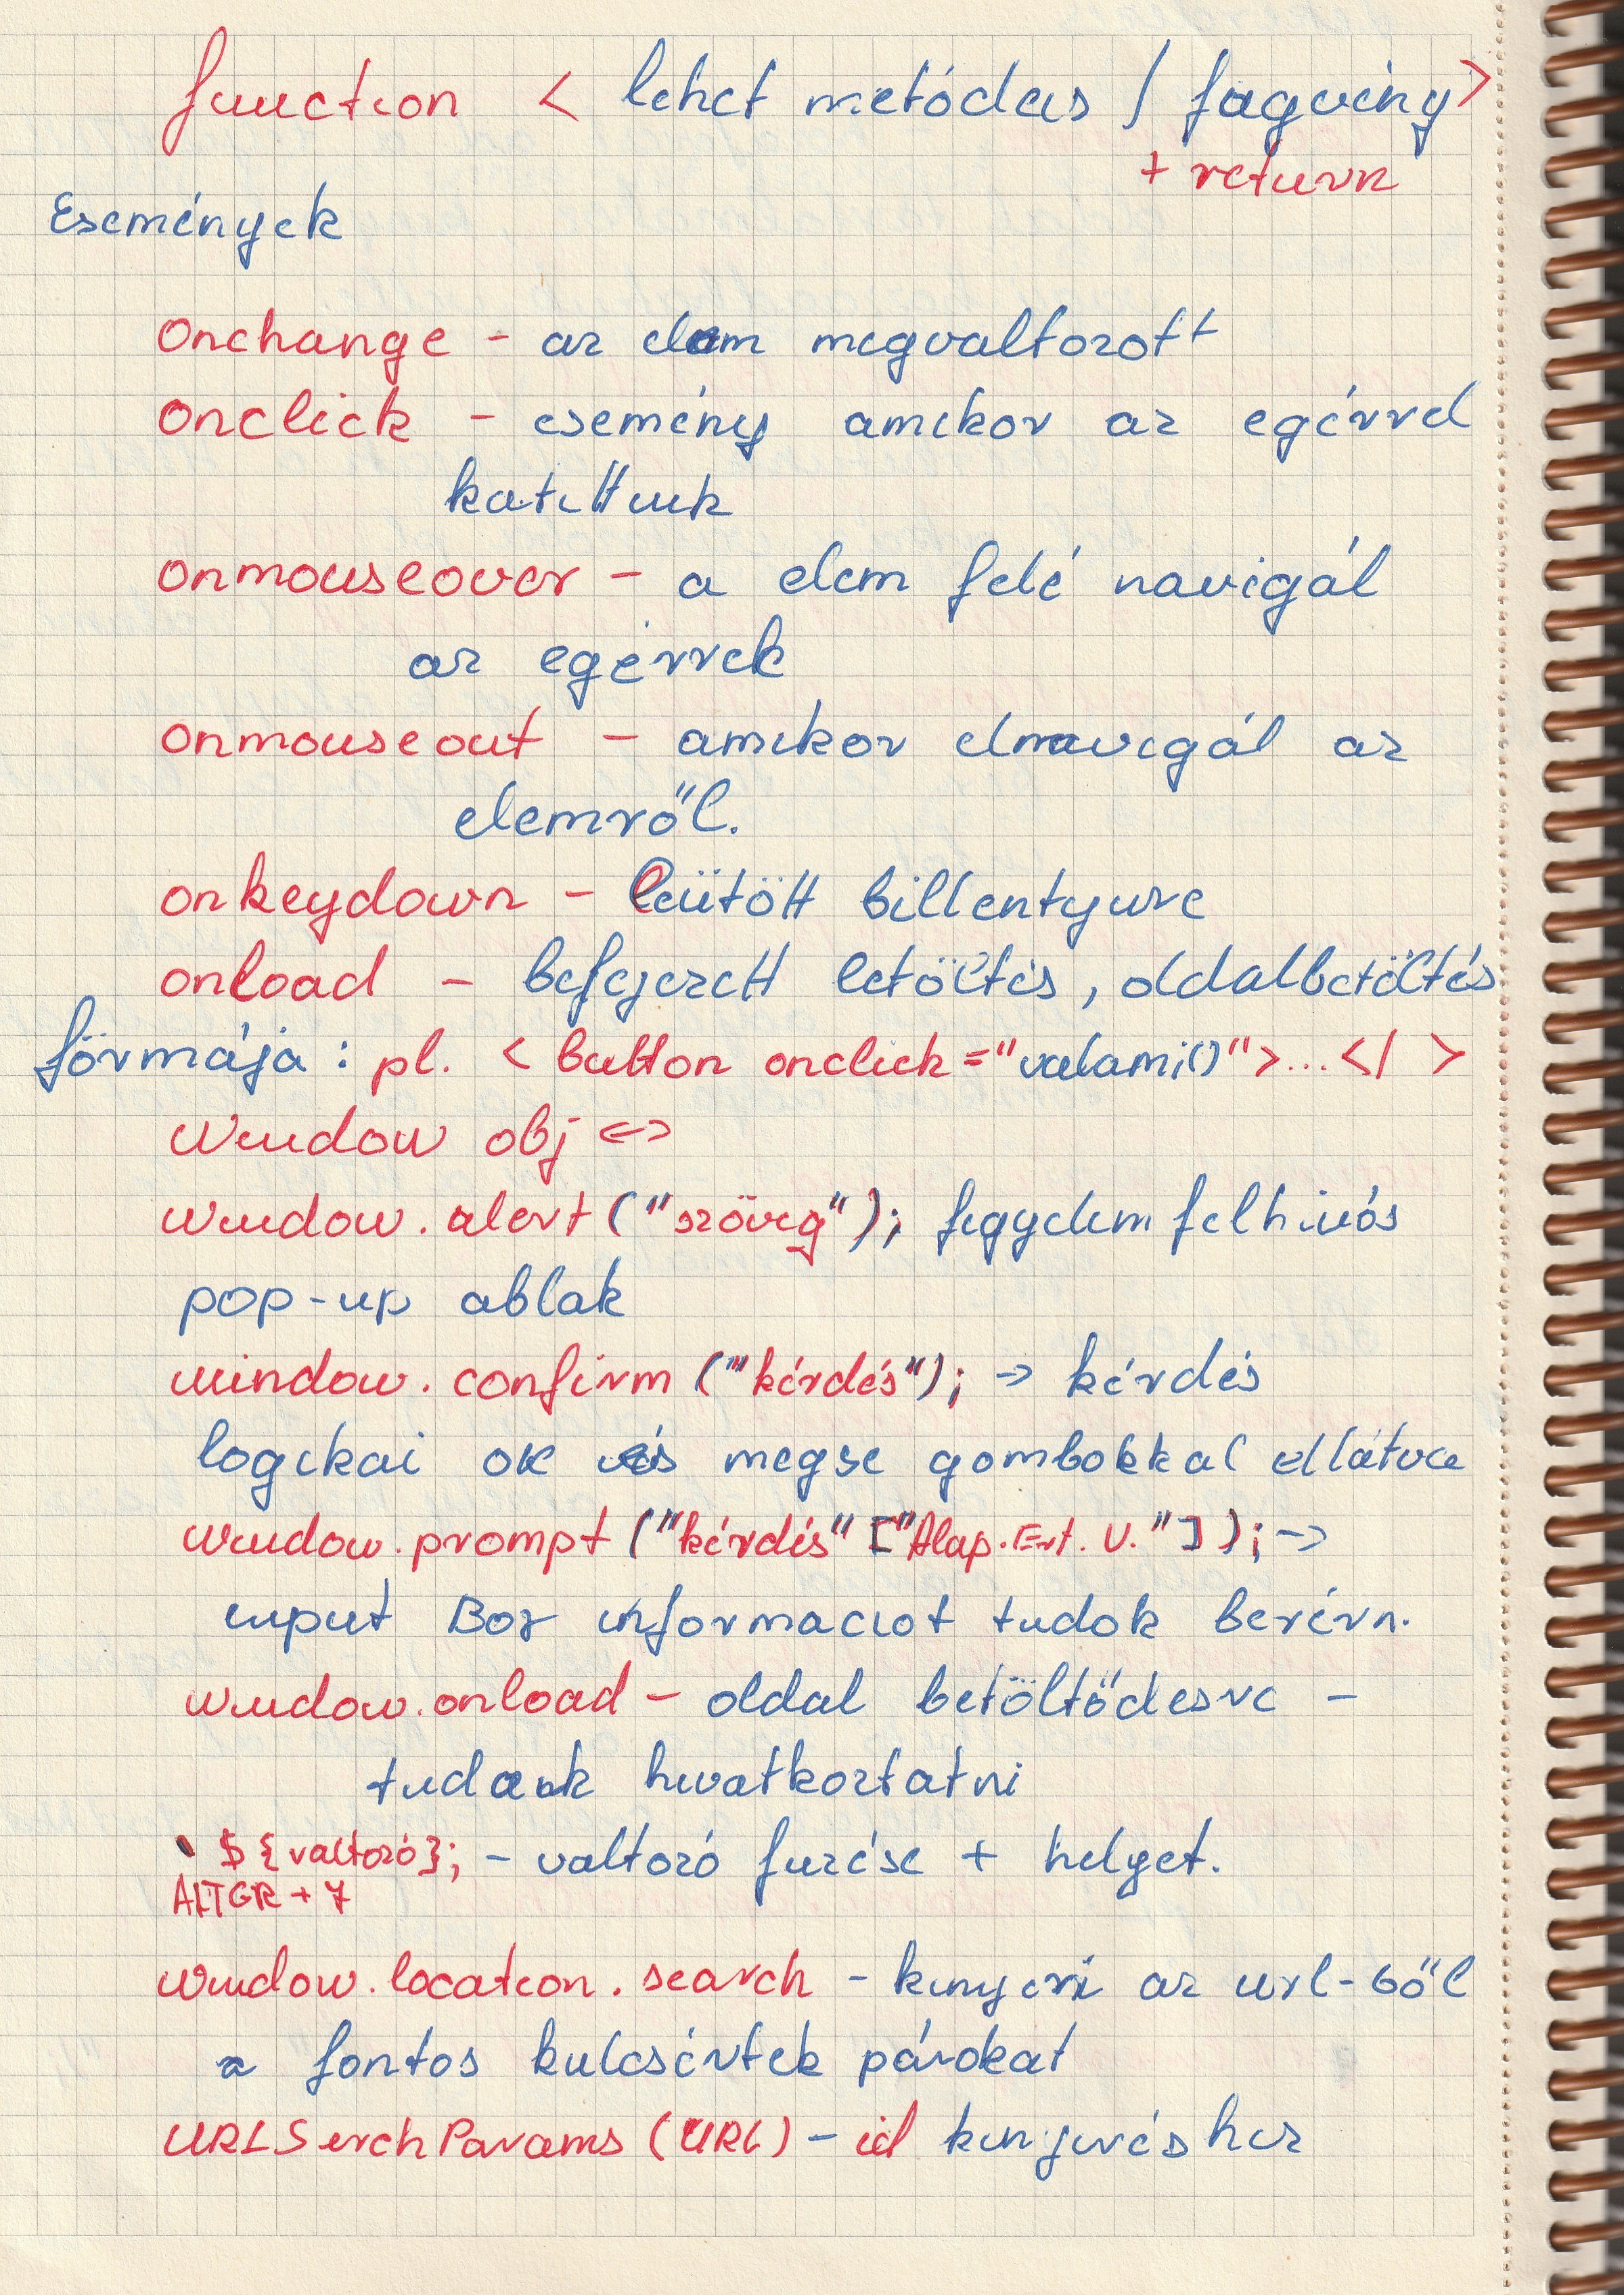 function < lehet metódus / fügvény>
+ return
Események
onchange - az elem megvaltozott
onclick - esemény amikor az egérrel
katittunk
onmouseover - a elem felé navigál
az egérrek
onmouseout - amikor elnavigál az
elemről.
onkeydown - leütött billentyure
onload - befejezett letöltés, oldalbetöltés
förmája: pl. < button onclick="valami()">...</ >
Window obj <->
window.alert("szöveg"); figyelem felhivós
pop-up ablak
window.confirm("kérdés"); -> kérdés
logikai ok és megse gombokkal ellátva
window.prompt("kérdés" ["Alap.Ért. V."]); ->
input Box informaciot tudok bekérn.
window.onload - oldal betöltődesre -
tudok hivatkoztatni
` ${valtozó}; - valtozó fuzése + helyet.
ALTGR + 7
window.location.search - kinyeri az url-ből
a fontos kulcsértek párokat
URLSerchParams (URL) - id kinyeréshez